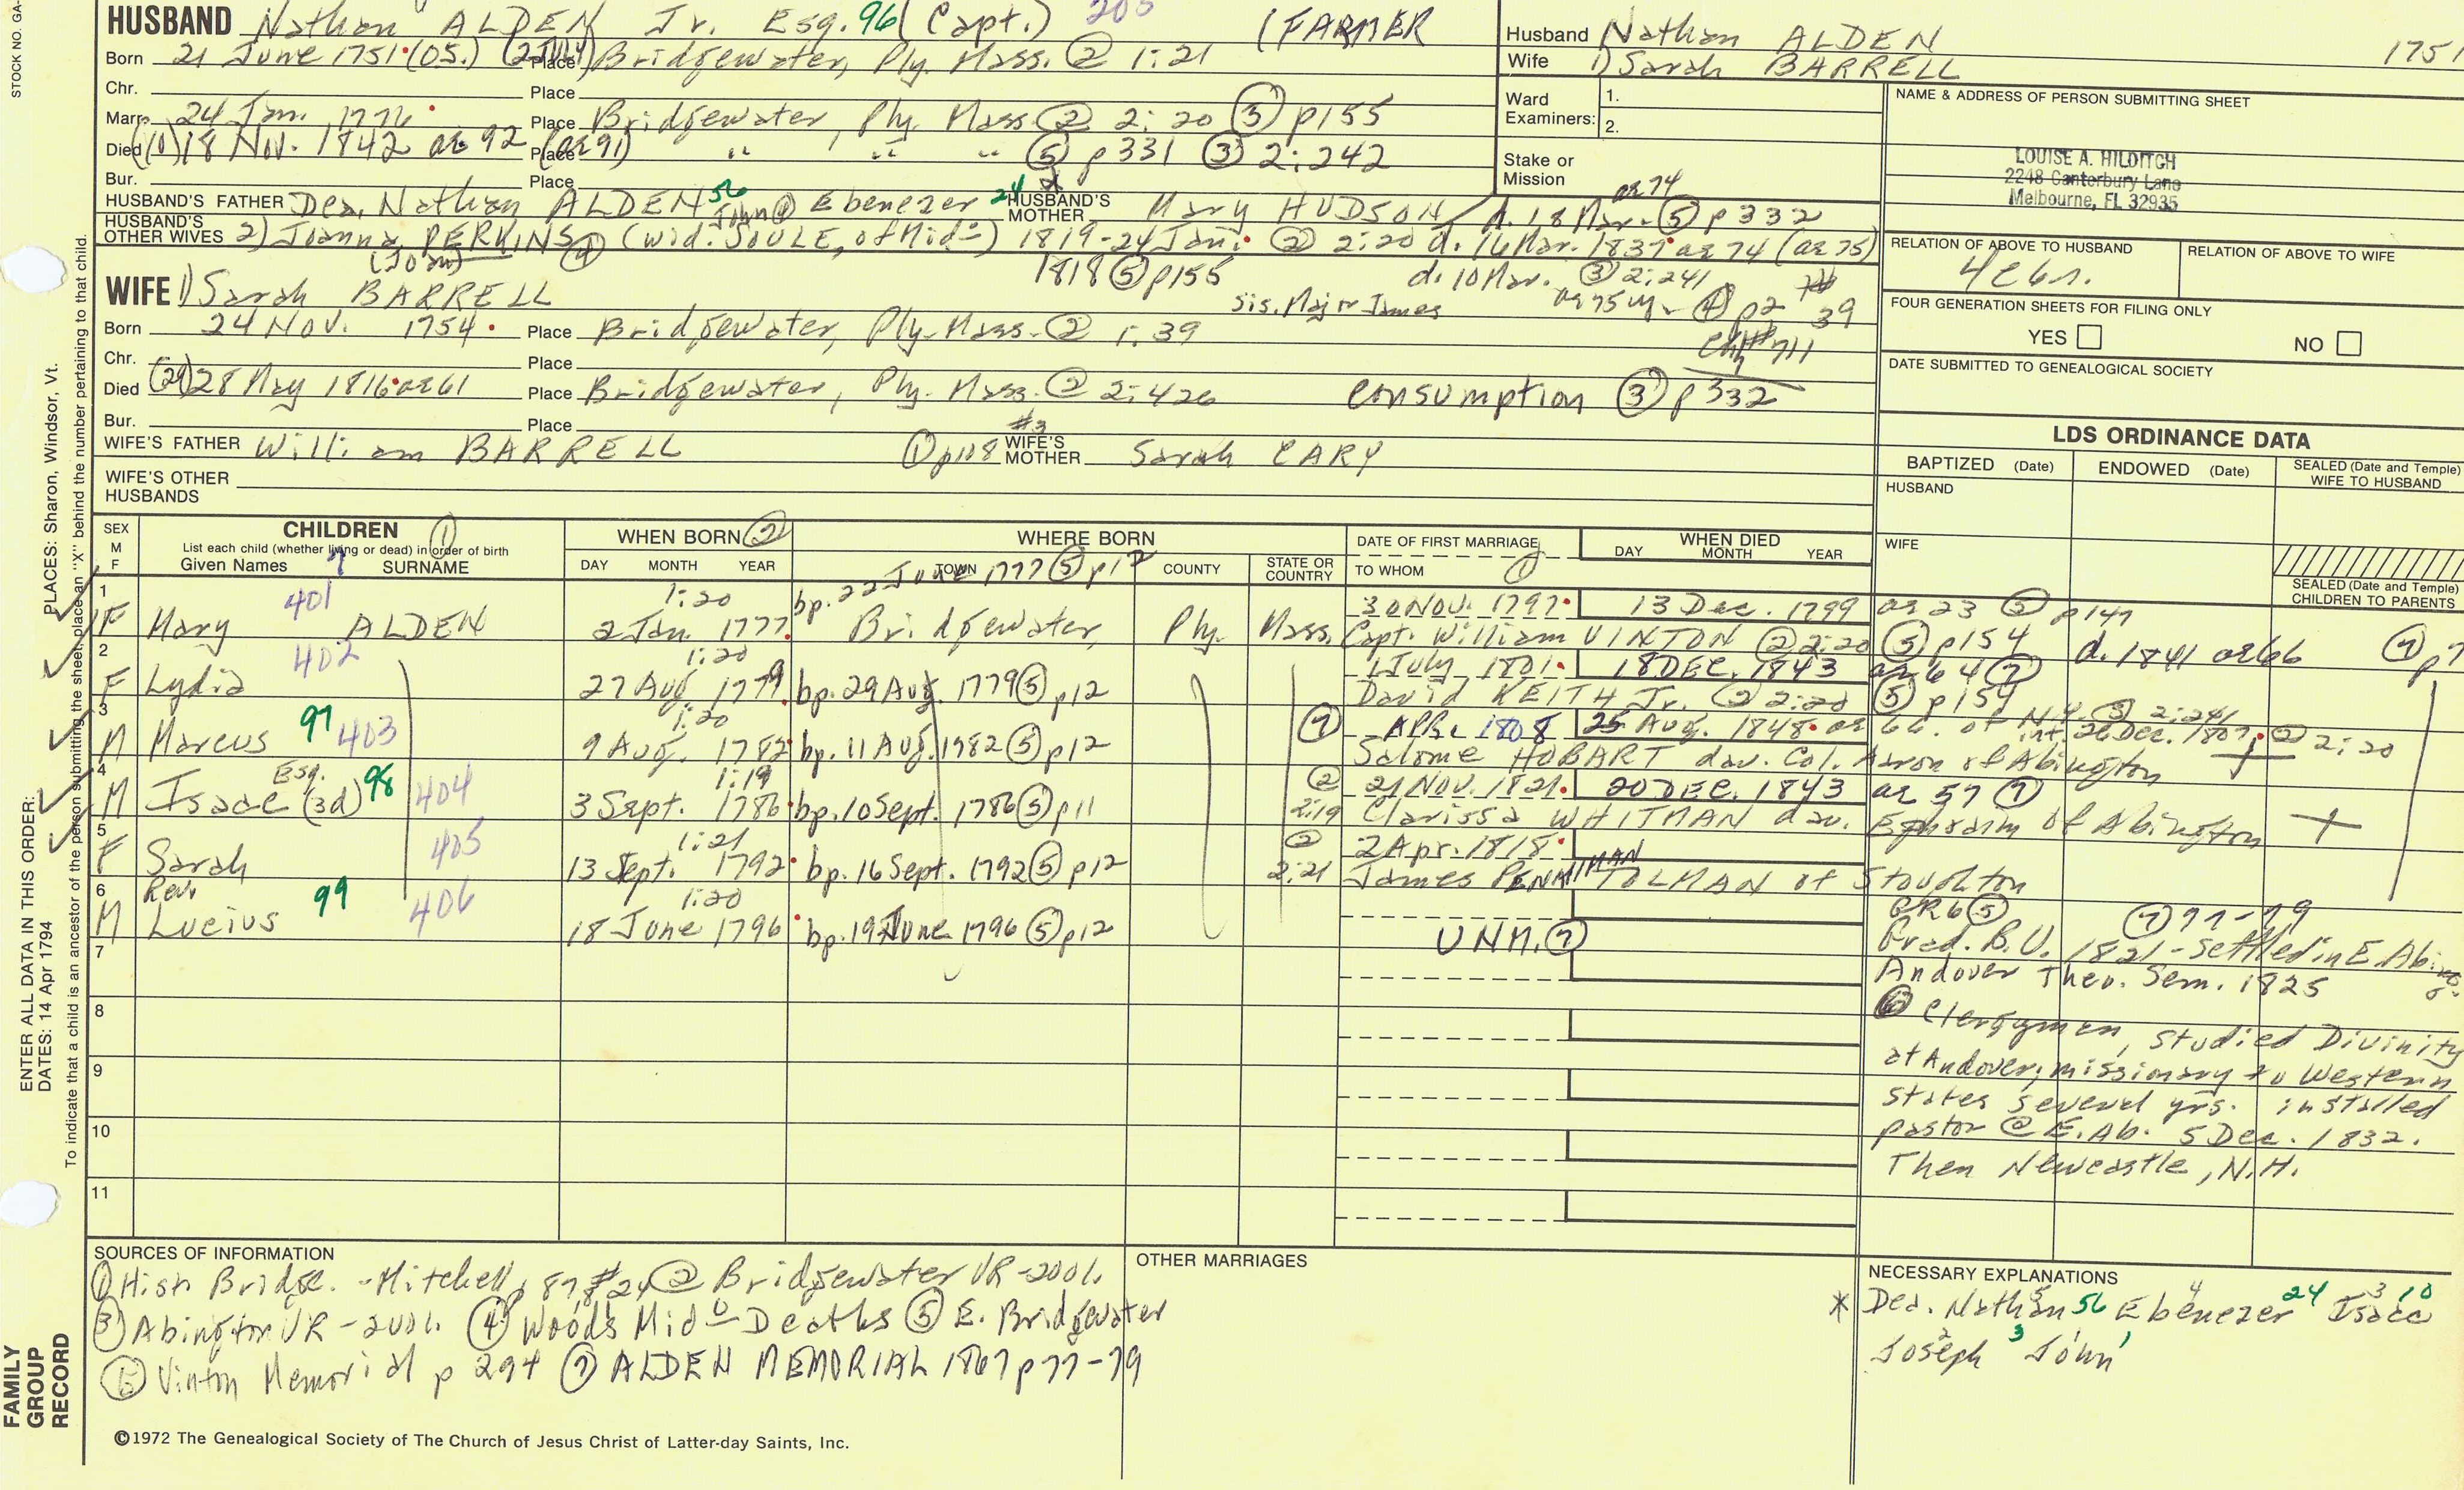 STOCK NO. GA-
HUSBAND Nathan ALDEN Jr. Esq. 96 (Capt.) 205 (FARMER
Born 21 June 1751 (OS.) (2 July) Place Bridgewater, Ply. Mass. ② 1:21
Chr. Place
Marr. 24 Jan. 1776 Place Bridgewater, Ply. Mass. ② 2:20 ⑤ p155
Died (10) 18 Nov. 1842 ae 92 (ae 91) Place " " " ⑤ p331 ③ 2:242
Bur. Place
HUSBAND'S FATHER Dea. Nathan ALDEN 56 Ebenezer 24 HUSBAND'S MOTHER Mary HUDSON / d. 18 Mar. ⑤ p332
ae 74
HUSBAND'S OTHER WIVES 2) Joanna PERKINS ④ (wid. SOULE, of Mid⁰) 1819-24 Jan. ② 2:20 d. 16 Mar. 1837 ae 74 (ae 75)
(Joan) 1818 ⑤ p155 d. 10 Mar. ③ 2:241
WIFE 1) Sarah BARRELL sis. Major James ae 75 y- ④ p2
39
Born 24 NOV. 1754 Place Bridgewater, Ply. Mass. ② 1:39
711
Chr. Place
Died (29) 28 May 1816 ae 61 Place Bridgewater, Ply. Mass. ② 2:426 consumption ③ p332
Bur. Place
WIFE'S FATHER William BARRELL ① p118 #3 WIFE'S MOTHER Sarah CARY
WIFE'S OTHER HUSBANDS
Husband Nathan ALDEN 1751
Wife 1) Sarah BARRELL
Ward Examiners: 1.
2.
Stake or Mission
NAME & ADDRESS OF PERSON SUBMITTING SHEET
LOUISE A. HILDITCH
2248 Canterbury Lane
Melbourne, FL 32935
RELATION OF ABOVE TO HUSBAND RELATION OF ABOVE TO WIFE
FOUR GENERATION SHEETS FOR FILING ONLY
YES NO
DATE SUBMITTED TO GENEALOGICAL SOCIETY
LDS ORDINANCE DATA
BAPTIZED (Date) ENDOWED (Date) SEALED (Date and Temple) WIFE TO HUSBAND
HUSBAND
WIFE
SEALED (Date and Temple) CHILDREN TO PARENTS
SEX M F CHILDREN ① WHEN BORN ② WHERE BORN DATE OF FIRST MARRIAGE WHEN DIED
List each child (whether living or dead) in order of birth
Given Names SURNAME DAY MONTH YEAR TOWN COUNTY STATE OR COUNTRY TO WHOM ① DAY MONTH YEAR
7
1 401 1:20 bp. 22 June 1777 ⑤ p12 30 NOV. 1797 13 Dec. 1799 ae 23 ⑤ p147
F Mary ALDEN 2 Jan. 1777 Bridgewater, Ply. Mass. Capt. William VINTON ② 2:20 ⑤ p154 d. 1841 ae 66 ⑦ p7
2 402 1:20 1 July 1801 18 DEC. 1843 ae 64 ⑦
F Lydia 27 Aug. 1779 bp. 29 Aug. 1779 ⑤ p12 David KEITH Jr. ② 2:20 ⑤ p154
3 97 403 1:20 ⑦ APR. 1808 25 Aug. 1848 ae 66. of N.Y. ③ 2:241
M Marcus 9 Aug. 1782 bp. 11 Aug. 1982 ⑤ p12 Salome HOBART dau. Col. Aaron of Abington int. 26 Dec. 1807 ② 2:20
4 Esq. 98 404 1:19 ② 21 NOV. 1821 20 DEC. 1843 ae 57 ⑦
M Isaac (3d) 3 Sept. 1786 bp. 10 Sept. 1786 ⑤ p11 2:19 Clarissa WHITMAN dau. Ephraim of Abington
5 405 1:21 ② 2 Apr. 1818
F Sarah 13 Sept. 1792 bp. 16 Sept. 1792 ⑤ p12 2:21 James PENNIMAN TOLMAN of Stoughton
6 Rev. 99 406 1:20 ⑦ 77-79
M Lucius 18 June 1796 bp. 19 June 1796 ⑤ p12 UNM. ⑦ Grad. B.U. 1821 - settled in E. Abing.
7 Andover Theo. Sem. 1825
8 ⑥ Clergyman, studied Divinity
9 at Andover; missionary to Western
states several yrs. installed
10 pastor @ E. Ab. 5 Dec. 1832.
Then Newcastle, N.H.
11
SOURCES OF INFORMATION
① Hist. Bridge. - Mitchell p 87, #24 ② Bridgewater VR - 2001.
③ Abington VR - 2001. ④ Woods Mid⁰ Deaths ⑤ E. Bridgewater
⑥ Vinton Memorial p 294 ⑦ ALDEN MEMORIAL 1867 p77-79
OTHER MARRIAGES
NECESSARY EXPLANATIONS
* Dea. Nathan⁵ 56 Ebenezer⁴ 24 Isaac³ 10
Joseph² 3 John¹ 1
©1972 The Genealogical Society of The Church of Jesus Christ of Latter-day Saints, Inc.
ENTER ALL DATA IN THIS ORDER:
DATES: 14 Apr 1794
PLACES: Sharon, Windsor, Vt.
To indicate that a child is an ancestor of the person submitting the sheet, place an "X" behind the number pertaining to that child.
FAMILY GROUP RECORD